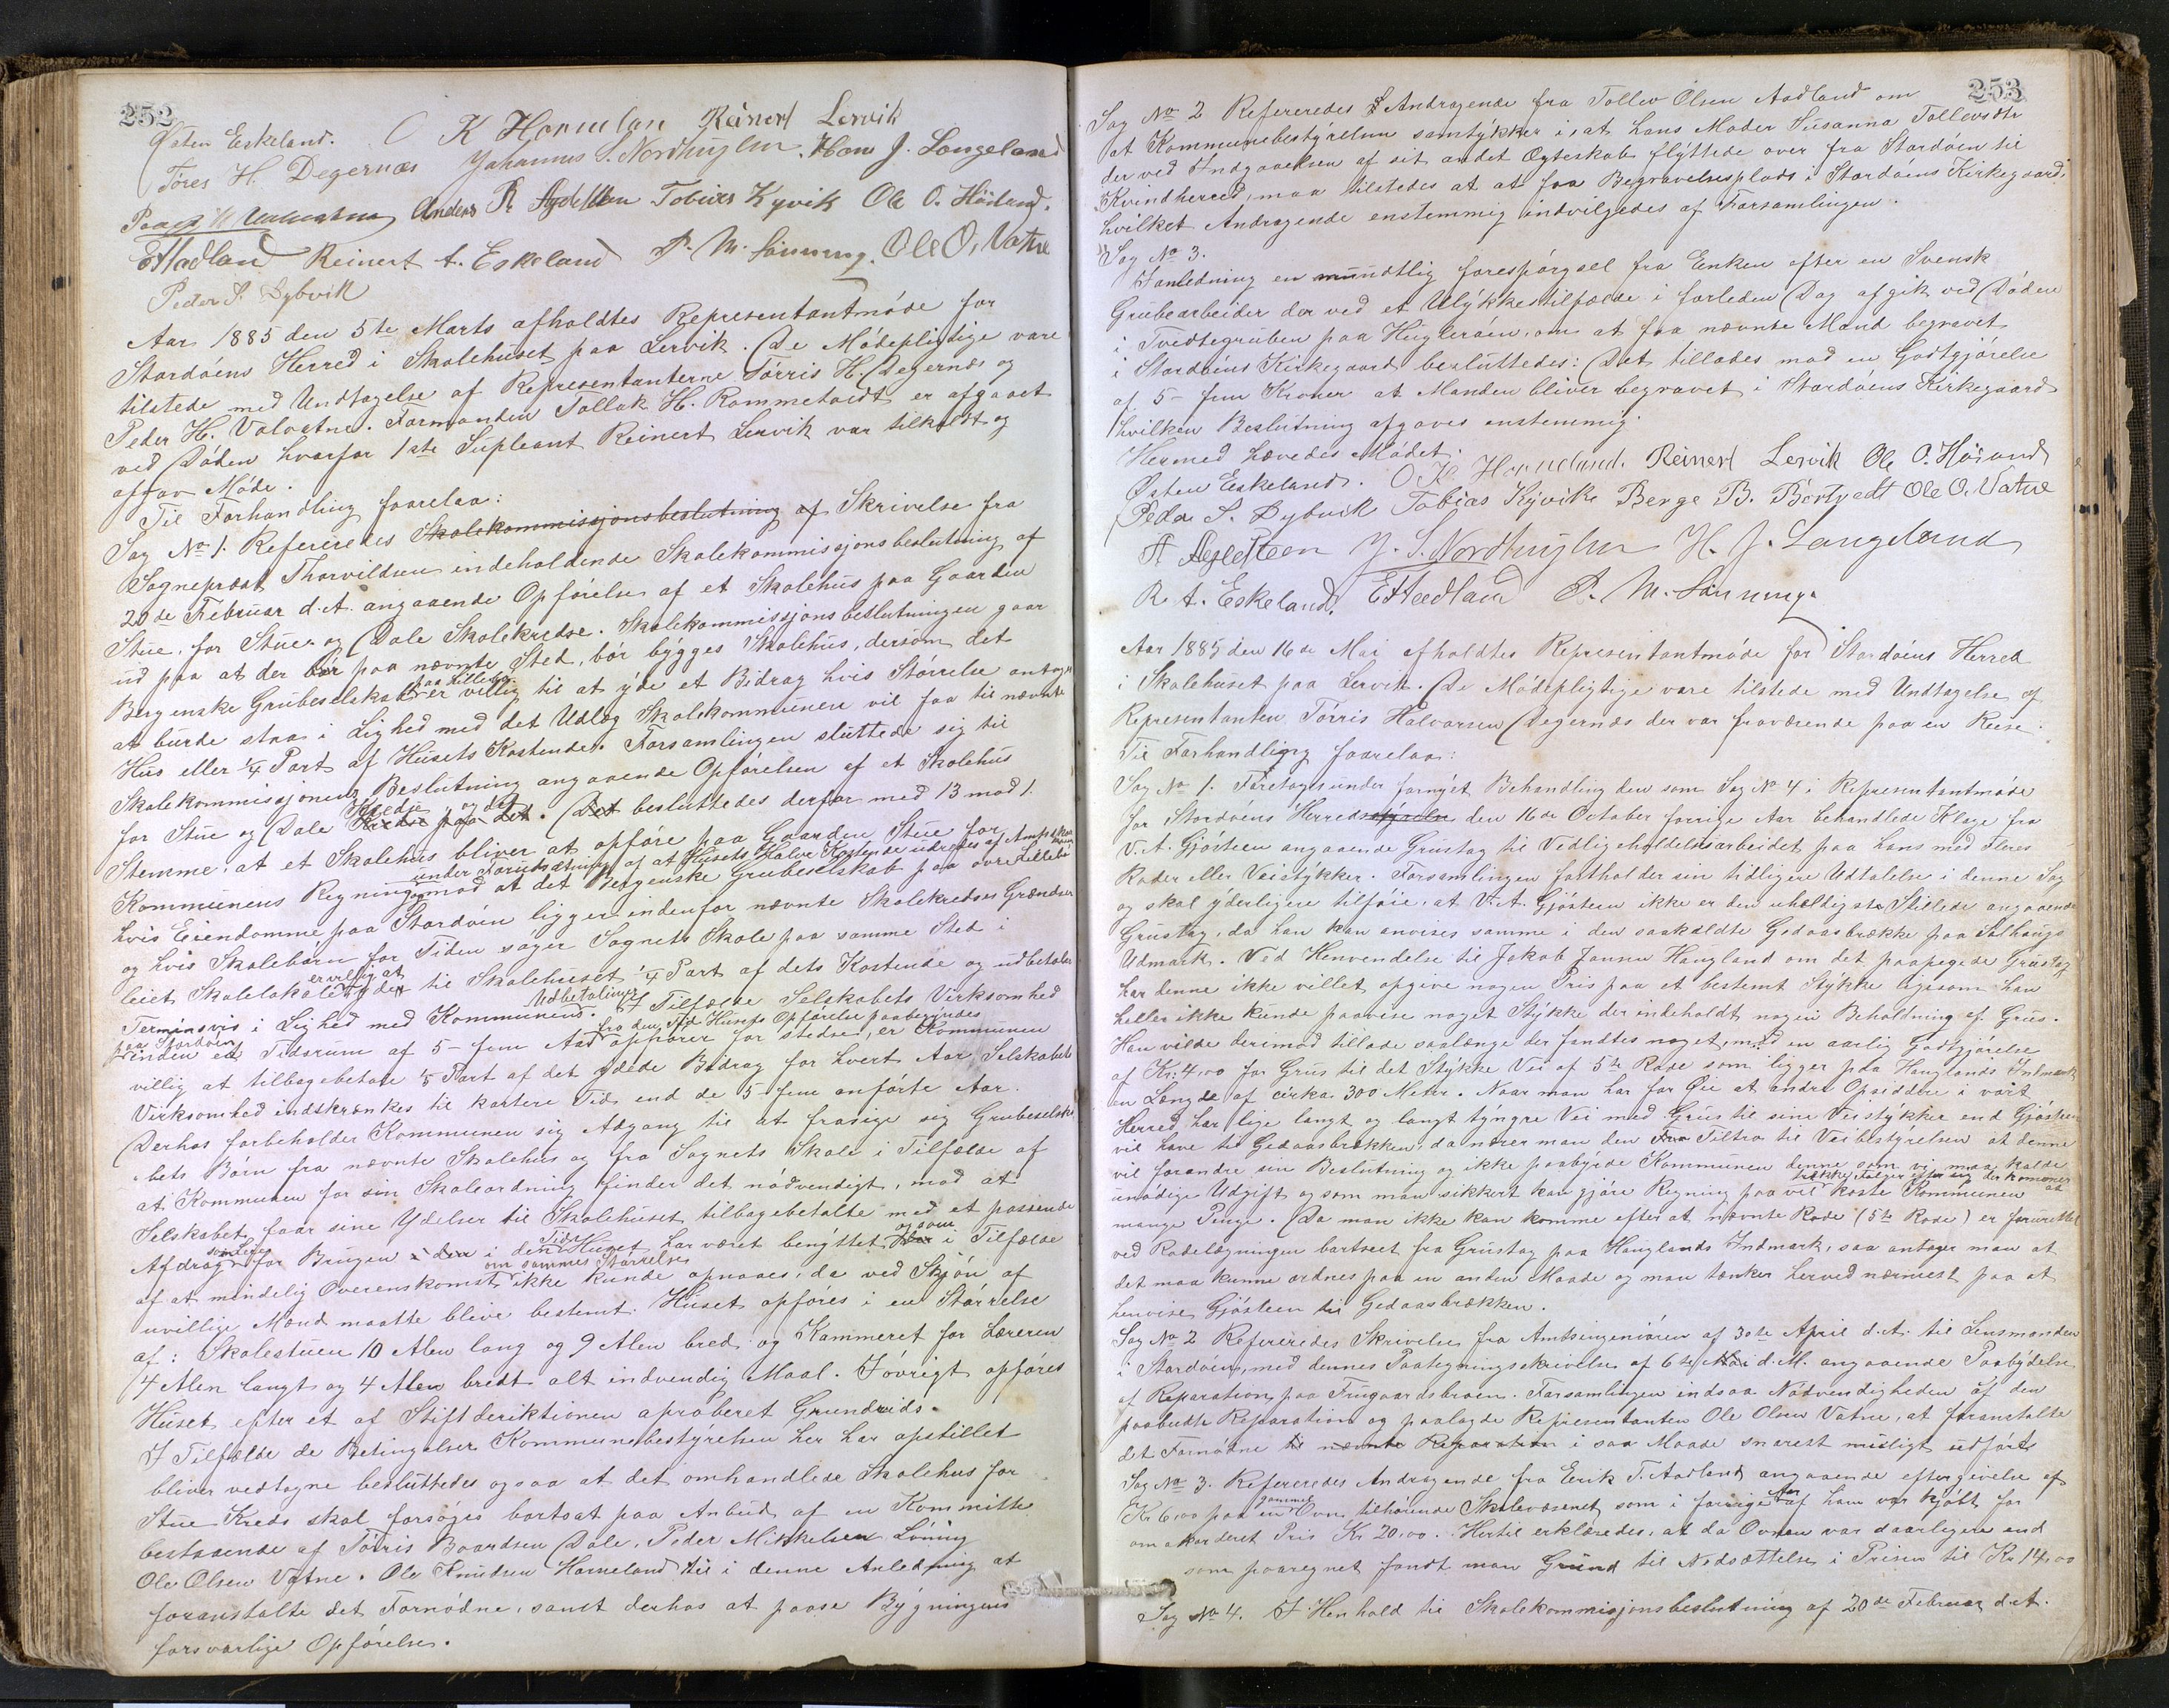 252
Østen Eskeland. O K Horneland Reinert Lervik
Tøres H. Degernæs Johannus S. Nordhuglen. Hans J. Langeland
Anders R. Tobias Kyvik Ole O. Høiland.
EHadland Reinert A. Eskeland P. M. Lønning. Ole O. Vatne
Peder S. Dybvik
Aar 1885 den 5te Marts afholdtes Representantmøde for
Stordøens Herred i Skolehuset paa Lervik. De Mødepligtige vare
tilstede med Undtagelse af Representanterne Tørris H. Degernæs og
Peder H. Valvatne. Formanden Tollak H. Rommetvedt er afgaaet
ved Døden hvorfor 1ste Supleant Reinert Lervik var tilkaldt og
afgav Møde.
Til Forhandling forelaa:
Sag No 1. Refereredes Skolekommissjonsbeslutning af Skrivelse fra
Sogneprest Thorvildsen indeholdende Skolekommissjonsbeslutning af
20de Februar d.A. angaaende Opførelse af et Skolehus paa Gaarden
Stue, for Stue og Dale Skolekredse. Skolekommissjonsbeslutningen gaar
ud paa at der bør paa nævnte Sted, bør bygges Skolehus, dersom det
Bergenske Grubeselskab paa Lillebø er villig til at yde et Bidrag hvis Størrelse antages
at burde staa i Lighed med det Udlæg Skolekommunen vil faa til nævnte
Hus eller 1/4 Part af Husets Kostende. Forsamlingen sluttede sig til
Skolekommissjonens Beslutning angaaende Opførelsen af et Skolehus
for Stue og Dale Kredse og det Kredse paa det. Det besluttedes derfor med 13 mod 1
Stemme, at et Skolehus bliver at opføre paa Gaarden Stue for
Kommunens Regning under Forudsætning af at Husets Halve Kostende udredes af Amtskassen mod at det Bergenske Grubeselskab paa øvre Lillebø
hvis Eiendomme paa Stordøen ligger indenfor nævnte Skolekredses Grændser
og hvis Skolebørn for Tiden søger Sognets Skole paa samme Sted i
leiet Skolelokale er villig at yde til Skolehuset 1/4 Part af dets Kostende og udbetaler
Terminsvis i Lighed med Kommunens Udbetalinger. I Tilfælde Selskabets Virksomhed
paa Stordøen inden et Tidsrum af 5 - fem Aar fra den Tid Husets Opførelse paabegyndes ophører for stedse, er Kommunen
villig at tilbagebetale 1/5 Part af det ydede Bidrag for hvert Aar Selskabets
Virksomhed indskrænkes til kortere Tid end de 5 fem anførte Aar.
Derhos forbeholder Kommunen sig Adgang til at frasige sig Grubeselska-
bets Børn fra nævnte Skolehus og fra Sognets Skole i Tilfælde af
at Kommunen for sin Skoleordning finder det nødvendigt, mod at
Selskabet faar sine Ydelser til Skolehuset tilbagebetalte med et passende
Afdrag for Brugen i den i den Tid Huset har været benyttet, og som i Tilfælde
af at mindelig Overenskomst om sammes Størrelse ikke kunde opnaaes, da ved Skjøn af
uvillige Mænd maatte blive bestemt. Huset opføres i en Størrelse
af: Skolestuen 10 Alen lang og 9 Alen bred og Kammeret for Læreren
4 Alen langt og 4 Alen bredt alt indvendig Maal. Iøvrigt opføres
Huset efter et af Stiftderiktionen aproberet Grundrids.
I Tilfælde de Betingelser Kommunebestyrelsen her har opstillet
bliver vedtagne besluttedes ogsaa at det omhandlede Skolehus for
Stue Kreds skal forsøges bortsat paa Anbud af en Kommitte
bestaaende af Tørris Baardsen Dale, Peder Mikkelsen Lønning
Ole Olsen Vatne. Ole Knudsen Horneland til i denne Anledning at
foranstalte det Fornødne, samt derhos at paase Bygningens
forsvarlige Opførelse.
253
Sag No 2 Refereredes Andragende fra Tollev Olsen Aadland om
at Kommunebestyrelsen samtykker i, at hans Moder Susanna Tollevsdtr
der ved Indgaaelsen af sit andet Ægteskab flyttede over fra Stordøen til
Kvindherred, maa tilstedes at at faa Begravelsesplads i Stordøens Kirkegaard,
hvilket Andragende enstemmig indvilgedes af Forsamlingen.
Sag No 3.
I anledning en mundtlig forespørgsel fra Enken efter en Svensk
Grubearbeider der ved et Ulykkestilfælde i forleden Dag afgik ved Døden
i Tvedtegruben paa Hugleraen, om at faa nævnte Mand begravet
i Stordøens Kirkegaard besluttedes: Det tillades mod en Godtgjørelse
af 5 - fem Kroner at Manden bliver begravet i Stordøens Kirkegaard
hvilken Beslutning afgaves enstemmig
Hermed hævedes Mødet.
Østen Eskeland. O. K. Horneland. Reinert Lervik Ole O. Høiland
Peder S. Dybvik Tobias Kyvik Berge B. Børtvedt Ole O. Vatne
J. S. Nordhuglen H. J. Langeland
R. A. Eskeland. EHadland P. M. Lønning.
Aar 1885 den 16de Mai afholdtes Representantmøde for Stordøens Herred
i Skolehuset paa Lervik. De Mødepligtige vare tilstede med Undtagelse af
Representanten Tørris Halvorsen Degernæs der var fraværende paa en Reise.
Til Forhandling forelaa:
Sag No 1. Foretoges under fornyet Behandling den som Sag No 4 i Representantmøde
for Stordøens Herredsstyrelse den 16de October forrige Aar behandlede Klage fra
V. A. Gjøsteen angaaende Grustag til Vedligeholdelsesarbeidet paa hans med Fleres
Roder eller Veistykker. Forsamlingen fastholder sin tidligere Udtalelse i denne Sag
og skal yderligere tilføie, at V. A. Gjøsteen ikke er den uheldigste Stillede angaaende
Grustag, da han kan anvises samme i den saakaldte Gedaasbrække paa Solhaugs
Udmark. Ved Henvendelse til Jakob Jansen Haugland om det paapegede Grustag
har denne ikke villet opgive nogen Pris paa et bestemt Stykke ligesom han
heller ikke kunde paavise noget Stykke der indeholdt nogen Beholdning af Grus.
Han vilde derimod tillade saalænge der fandtes noget, mod en aarlig Godtgjørelse
af Kr. 4,00 for Grus til det Stykke Vei af 5te Rode som ligger paa Hauglands Indmark
en Længde af cirka 300 Meter. Naar man har for Øie at andre Opsiddere i vort
Herred har lige langt og langt tyngre Vei med Grus til sine Veistykker end Gjøsteen
vil have til Gedaasbrækken, da nærer man den Tiltro til Veibestyrelsen at denne
vil forandre sin Beslutning og ikke paabyde Kommunen denne som vi maa kalde
unødige Udgift og som man sikkert kan gjøre Regning paa vil trække Følger efter sig der kommer at koste Kommunen
mange Penge. Da man ikke kan komme efter at nævnte Rode (5te Rode) er forurettet
ved Rodelægningen bortseet fra Grustag paa Hauglands Indmark, saa antager man at
det maa kunne ordnes paa en anden Maade og man tænker herved nærmest paa at
henvise Gjøsteen til Gedaasbrækken.
Sag No 2 Refereredes Skrivelse fra Amtsingeniøren af 30te April d.A. til Lensmanden
i Stordøen, med dennes Paategningsskrivelse af 6te Mai d.M. angaaende Paabydelse
af Reparation paa Frugaardsbroen. Forsamlingen indsaa Nødvendigheden af den
paabudte Reparation og paalagde Representanten Ole Olsen Vatne, at foranstalte
det Fornødne til nævnte Reparation i saa Maade snarest muligt udført.
Sag No 3. Refereredes Andragende fra Eerik T. Aadland angaaende eftergivelse af
Kr 6,00 paa en gammel Ovn tilhørende Skolevæsenet som i forrige Aar af ham var kjøbt for
om akorderet Pris Kr. 20,00. Hertil erklæredes, at da Ovnen var daarligere end
som paaregnet fandt man Grund til Nedsættelse i Prisen til Kr 14,00
Sag No 4. I Henhold til Skolekommisjonsbeslutning af 20de Februar d.A.